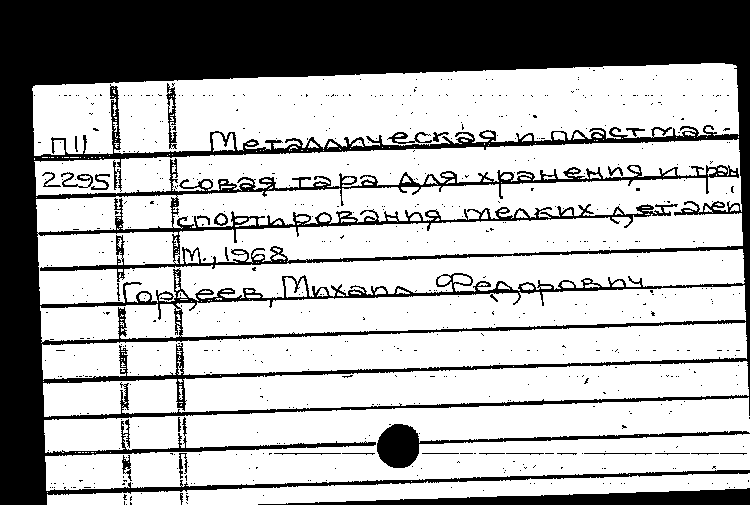 П11 Металлическая и пластмас-
2295 совая тара для хранения и тран
спортирования мелких деталей
М., 1968
Гордеев, Михаил Федорович.